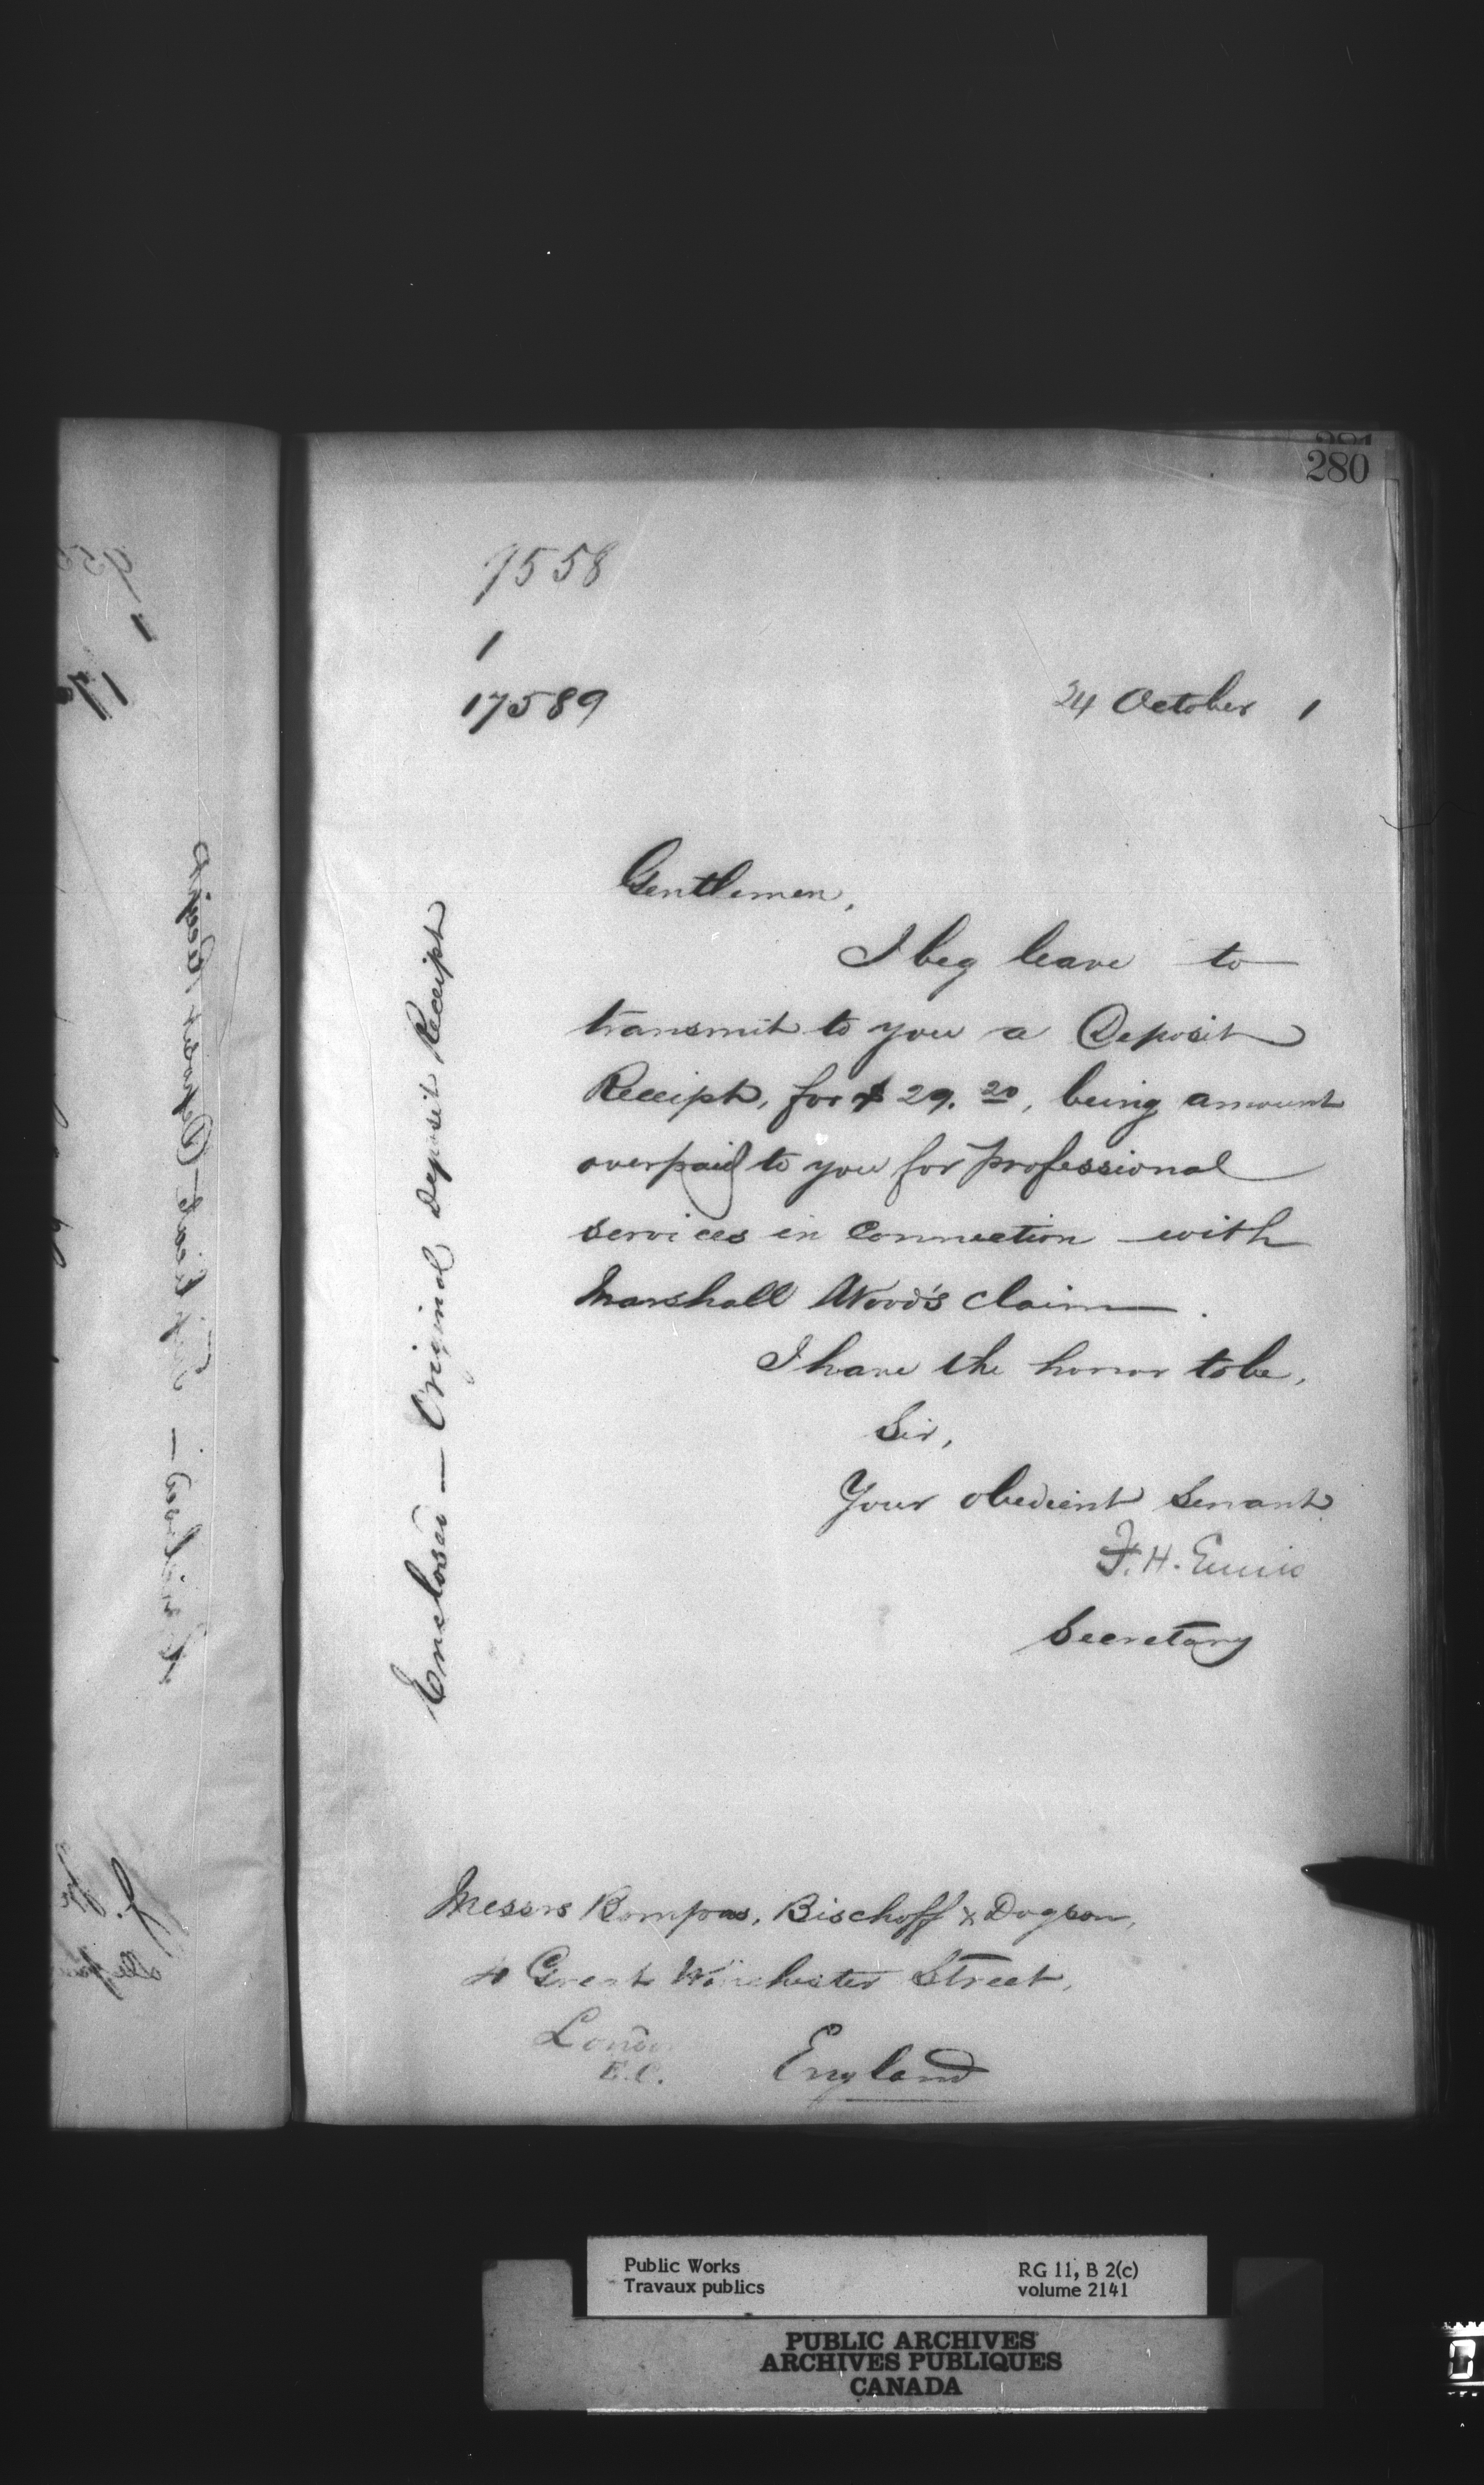 280
9558
1
17589
24 October 1
Gentlemen,
I beg leave to
transmit to you a Deposit
Receipt, for $ 29. 20, being amount
overpaid to you for professional
services in connection with
Marshall Wood's claim.
I have the honor to be,
Sir,
Your obedient Servant
F. H. Ennis
Secretary
Enclosed — Original Deposit Receipt
Messrs Bompas, Bischoff & Dogson,
4 Great Winchester Street,
London
E.C. England
Public Works
Travaux publics
RG 11, B 2(c)
volume 2141
PUBLIC ARCHIVES
ARCHIVES PUBLIQUES
CANADA